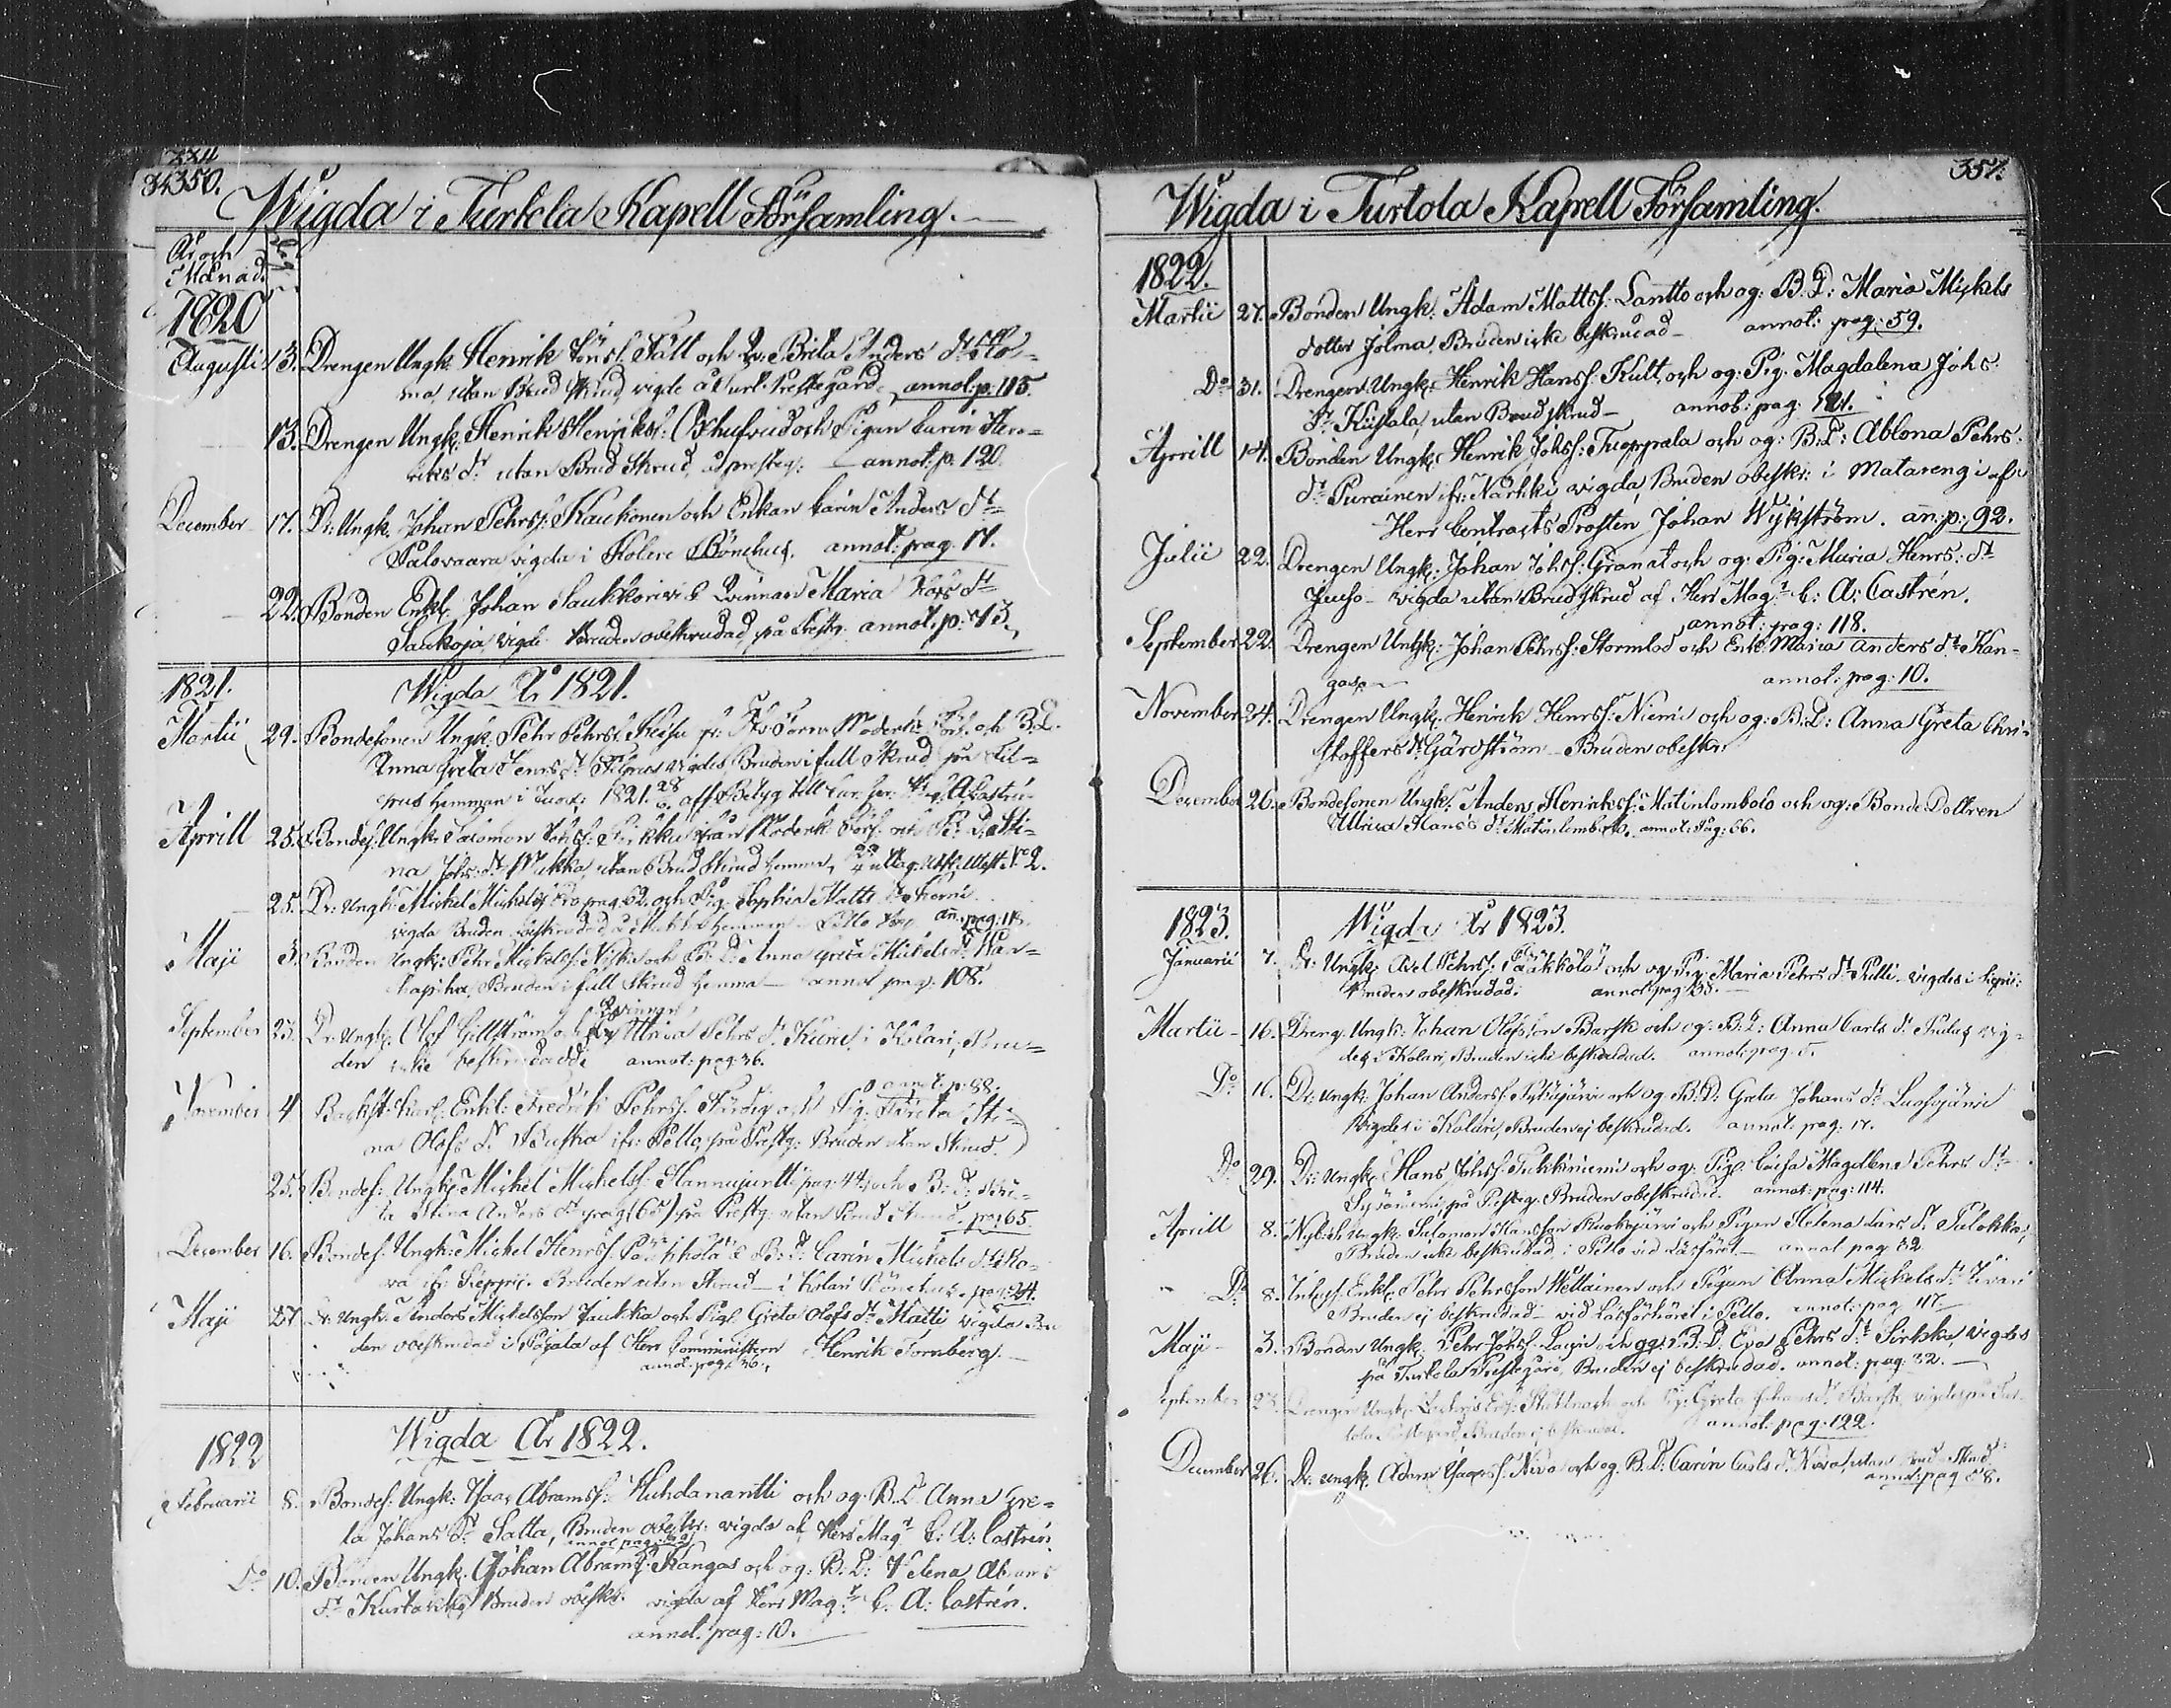 350.
Wigda i Turtola Kapell Församling.
År och
Månad.
Dag
1820
Augusti 13. Drengen Ungk. Henrik Fält och Brita Anders dr
ma, utan Brud Skrud, vigde å Turt. Prestegård, annot: p. 115.
13. Drengen Ungk. Henrik Henrikss: Oxhufvud och Pigan Carin Hen=
riks dr utan Brud Skrud, å presteg: annot: p. 120.
December 17. Dr: Ungk. Johan Pehrss: Kaukonen och Enkan Carin Anders dr
Palovaara vigda i Kolare Bönehus. annot: pag. 17.
22. Bonden Enkl. Johan Saukkoriivi & Qvinnan Maria Lars dr
Saukoja, vigde Bruden obeskrudad på Prestg. annot. p: 43.
1821. Wigda År 1821.
Martii 29. Bondesonen Ungk. Pehr Pehrss fr: Torne Moderk: Förs. och B: D.
Anna Greta Henrs: dr Filpus vigdes, Bruden i full Skrud på Fil=
pus Hemman i Tuor: 1821.
Aprill 25. Bondes: Ungk. Salomon Johss: från Moderk: Förs. och B: D. Sti=
na Johs: dr Mukka, utan Brud Skrud hemma, No 2.
25. Dr: Ungk: Mickel Mickelss pag. 62. och Pig. Sophia Matts dr Niemi
vigda Bruden beskrudad hemman Pello an. pag: 118.
Maji 3. Bonden Ungk: Pehr Mickelss: och B: D: Anna Greta Mickels dr Wan=
hapiha, Bruden i full Skrud hemma annot pag. 108.
September 23. Dr Ungk. Olof Gillström och Qvinnan Ulrica Pehrs dr i Kolari, Bru=
den icke beskrudad annot: pag 36.
November 4 Enkl: Fredrik Pehrss. Färdig och Pig. Greta Sti= annot. p: 88.
na Olofs dr ifr: Pello, på Prestg: Bruden utan Skrud.
25. Bondes: Ungk. Mickel Mickelss: Hannujuntti pag. 44. och B: D: Bri=
ta Stina Anders dr pag (65) på Prestg: utan Brud Skrud. pag 65.
December 16. Bondes: Ungk: Mickel Henrss: & B: D: Carin Mickels dr
va ifr Sieppij: Bruden utan Skrud i Kolari Bönehus. pag: 24.
Maji 27 Dr Ungk. Anders Mickelsson Jaukka och Pig. Greta Olofs dr Matti vigda Bru
den obeskrudad i Pajala af Herr Comministern Henrik Fornberg.
annot. pag. 36.
1822 Wigda År 1822.
Februarii 8. Bondes: Ungk: Isaac Abramss: Huhdanantti och og. B. D. Anna Gre=
ta Johans dr Satta, Bruden obeskr. vigda af Herr Magr C: A: Castrén.
Do 10. Bonden Ungk. Johan Abramss: Kangas och og: B: D: Helena Abrams
dr Kurtakko Bruden obeskr. vigda af Herr Magr C. A: Castrén.
annot. pag: 10.
351.
Wigda i Turtola Kapell Församling.
1822.
Martii 27. Bonden Ungk: Adam Mattss: Lantto och og: B. D: Maria Mickels
dotter Jolma, Bruden icke beskrudad annot: pag: 59.
Do 31. Drengen Ungk. Henrik Hanss: Kult, och og: Pig. Magdalena Johs
dr Kiistala, utan Brud skrud annot: pag: 121.
Aprill 14. Bonden Ungk. Henrik Johss: Tuoppala och og: B: D: Ablona Pehrs:
dr Purainen ifr: Narkki vigda, Bruden obeskr: i Matarengi af
Herr Contracts Prosten Johan Wykström. an: p: 92.
Julii 22. Drengen Ungk: Johan Johss: Granat och og: Pig: Maria Henrs: dr
Juuso vigda utan Brud skrud af Herr Magr C: A: Castrén.
annot: pag: 118.
September 22. Drengen Ungk: Johan Pehrss: Stormlod och Enk: Maria Anders dr Kan=
gas annot: pag: 10.
November 24. Drengen Ungk. Henrik Henrss: Niemi och og: B: D: Anna Greta Chri=
stoffers dr Gärdström Bruden obeskr.
December 26. Bondesonen Ungk: Anders Henrikss: Matinlombolo och og: Bonde Dottren
Ulrica Hans's dr Matinlombolo. annot: Pag: 66.
1823. Wigda År 1823.
Januarii 7. Dr: Ungk: Axel Pehrss: Pääkkölä och og: Pig: Maria Pehrs dr Pulli. vigdes i Siepii:
Bruden obeskrudad. annot: pag: 35.
Martii 16. Dreng. Ungk: Johan Olofsson Barsk och og: B: D: Anna Carls dr vig=
des i Kolari, Bruden icke beskrudad. annot: pag. 5.
Do 16. Dr: Ungk. Johan Anderss: och og B: D: Greta Johans dr Luosujärvi
Vigdes i Kolari, Bruden ej beskrudad. annot: pag: 17.
Do 29. Dr: Ungk. Hans Johss: Tukkiniemi och og: Pig. Caisa Magdlena Pehrs dr
på Presteg. Bruden obeskrudad. annot: pag: 114.
Aprill 8. Nyb: Ungk. Salomon Hansson Ruokojärvi och Pigan Helena Lars dr
Bruden icke beskrudad, i Pello vid annot pag 82
Do 8. Enkl. Pehr Pehrsson Wellainen och Pigan Anna Mickels dr
Bruden ej beskrudad vid Läsförhöret i Pello. annot: pag 117.
Maji 3. Bonden Ungk. Pehr Johss. och og: B. D. Eva Pehrs dr Sirkka, vigdes
på Turtola Prestegård, Bruden ej beskrudad. annot: pag: 32.
September 28. Drengen Ungk. och Pig: Greta Johans dr Barsk, vigdes på Tur=
tola Prestegård, Bruden ej beskrudad. annot: pag: 122.
December 26. Dr: Ungk. Adam Isacss: Niva och og. B. D: Carin Carls dr Niva, utan Brud Skrud
annot: pag 58.